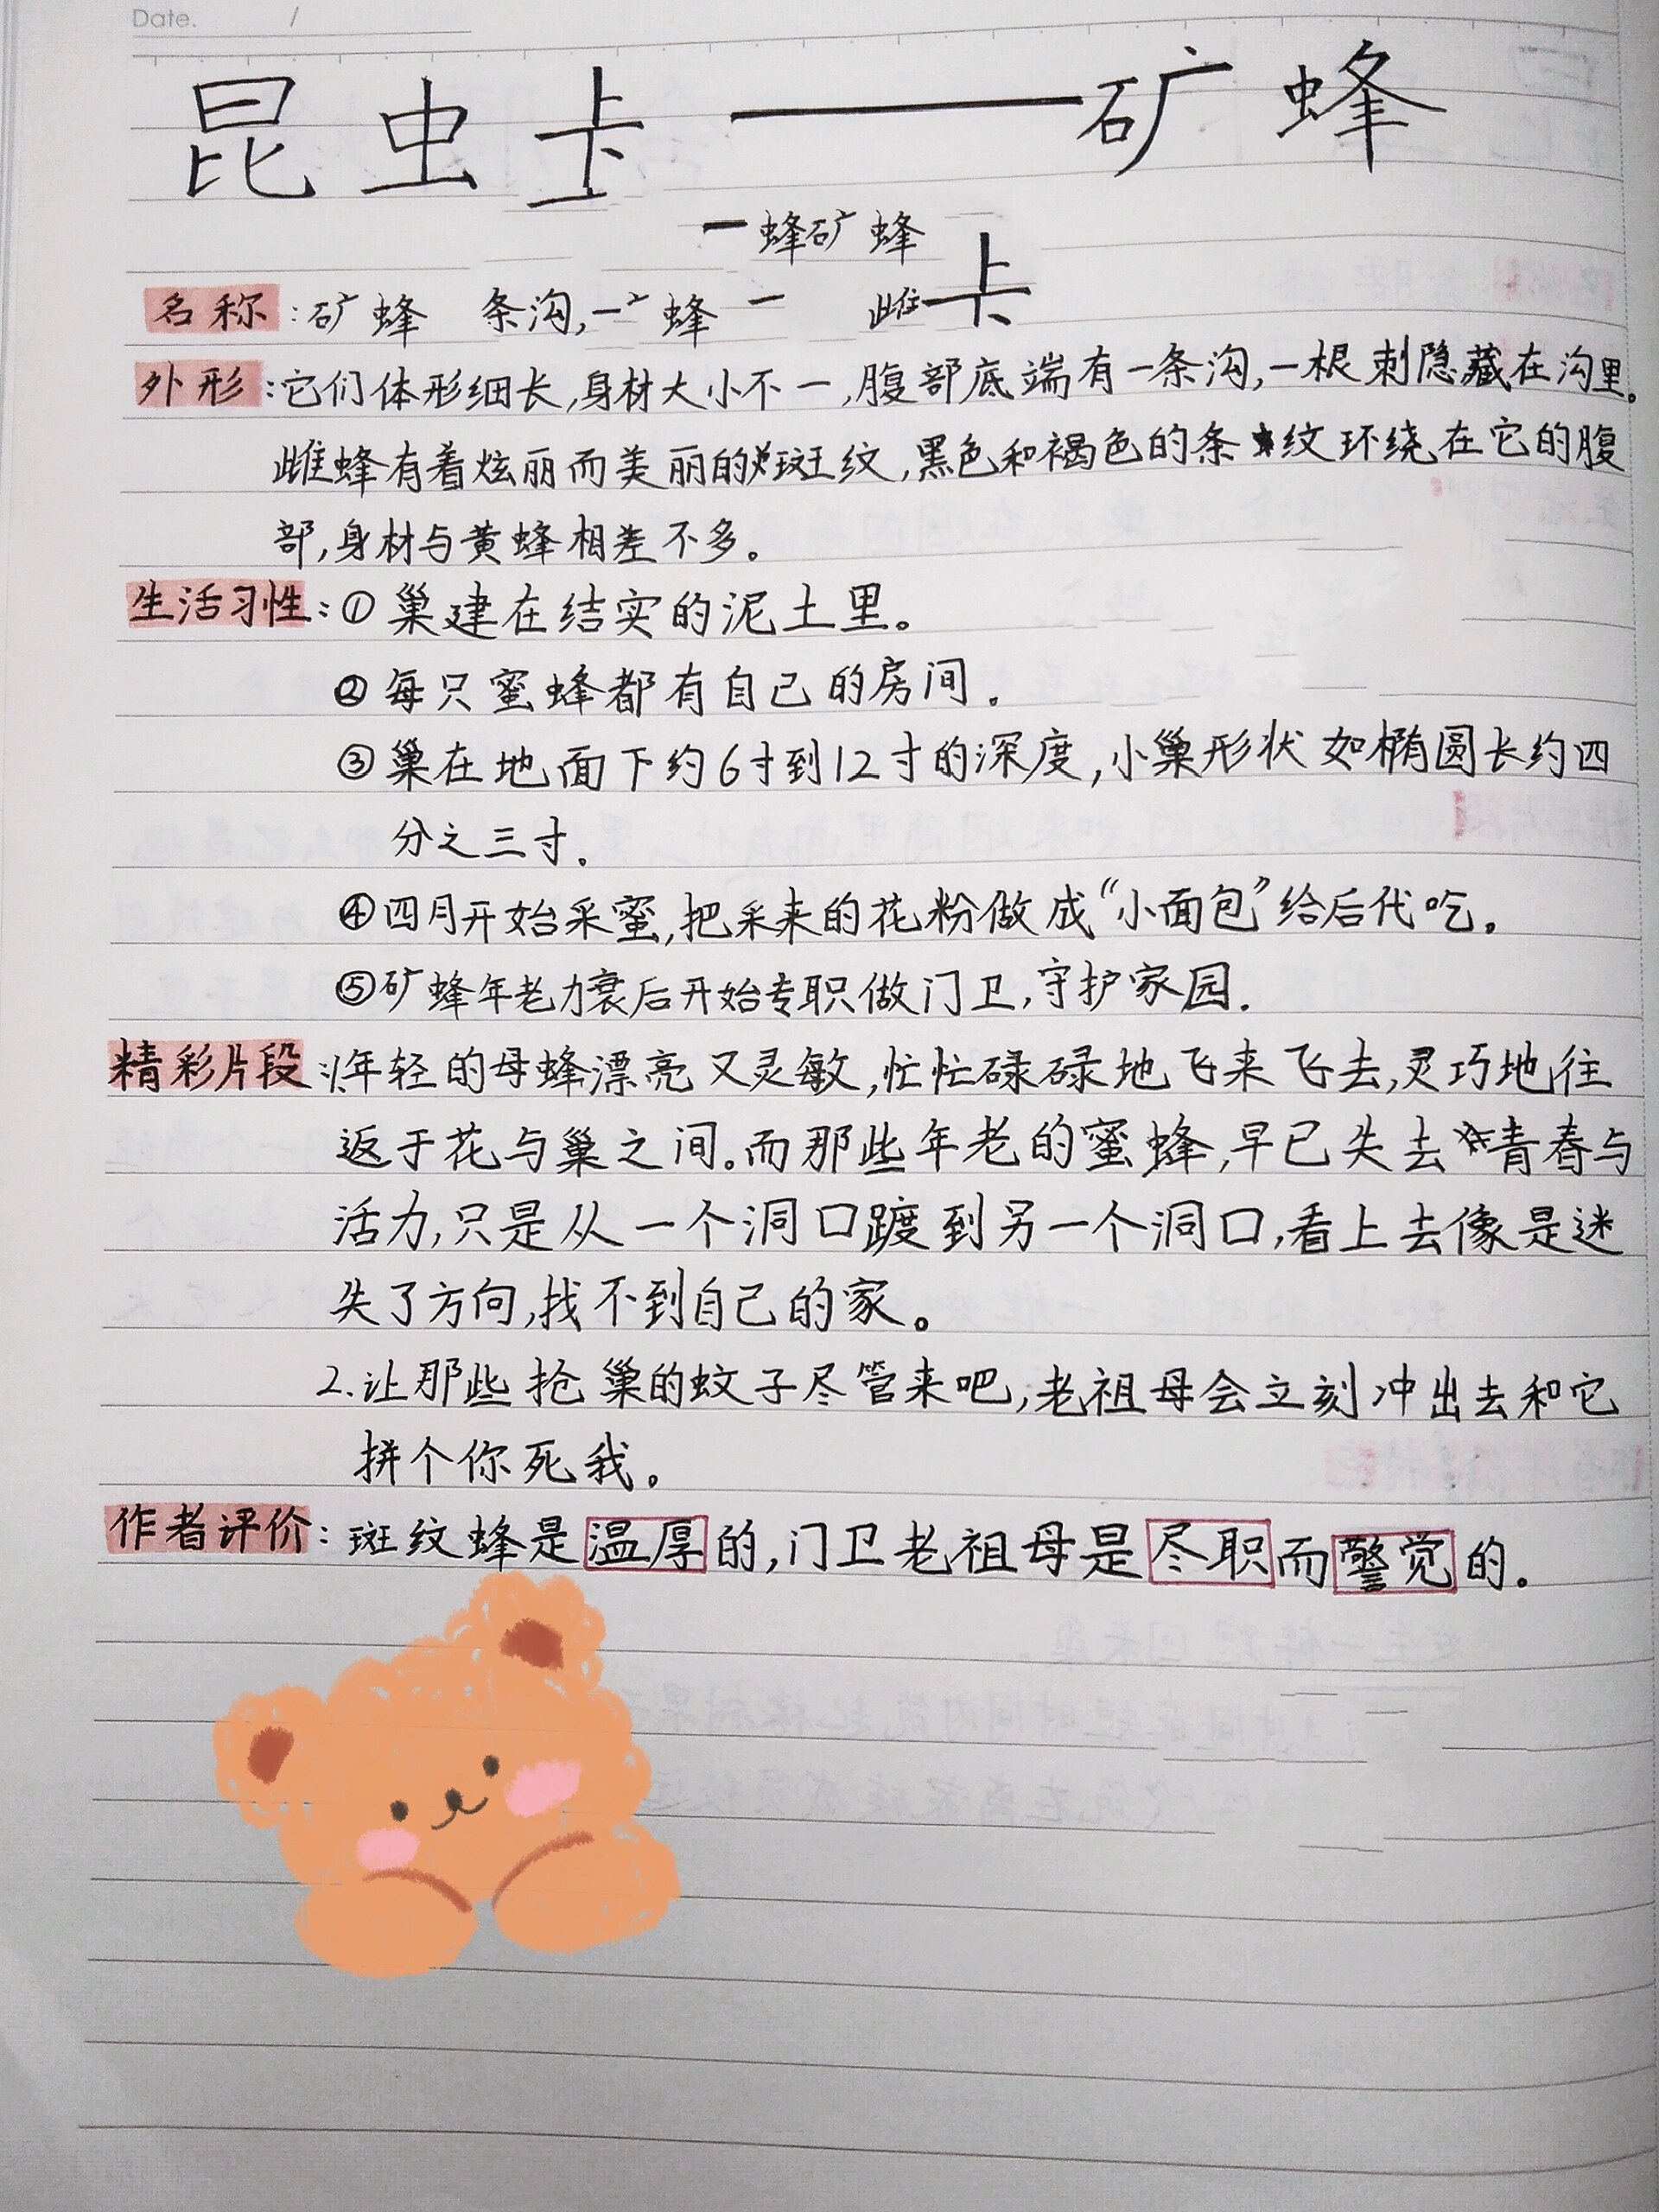 Date. /
昆虫卡——矿蜂
一蜂矿蜂
名称:矿蜂 条沟,一 蜂一 雌卡
外形:它们体形细长,身材大小不一,腹部底端有一条沟,一根刺隐藏在沟里。
雌蜂有着炫丽而美丽的斑纹,黑色和褐色的条纹环绕在它的腹
部,身材与黄蜂相差不多。
生活习性:①巢建在结实的泥土里。
②每只蜜蜂都有自己的房间.
③巢在地面下约6寸到12寸的深度,小巢形状如椭圆长约四
分之三寸.
④四月开始采蜜,把采来的花粉做成“小面包”给后代吃.
⑤矿蜂年老力衰后开始专职做门卫,守护家园.
精彩片段:1.年轻的母蜂漂亮又灵敏,忙忙碌碌地飞来飞去,灵巧地往
返于花与巢之间。而那些年老的蜜蜂,早已失去青春与
活力,只是从一个洞口踱到另一个洞口,看上去像是迷
失了方向,找不到自己的家。
2.让那些抢巢的蚊子尽管来吧,老祖母会立刻冲出去和它
拼个你死我。
作者评价:斑纹蜂是温厚的,门卫老祖母是尽职而警觉的.